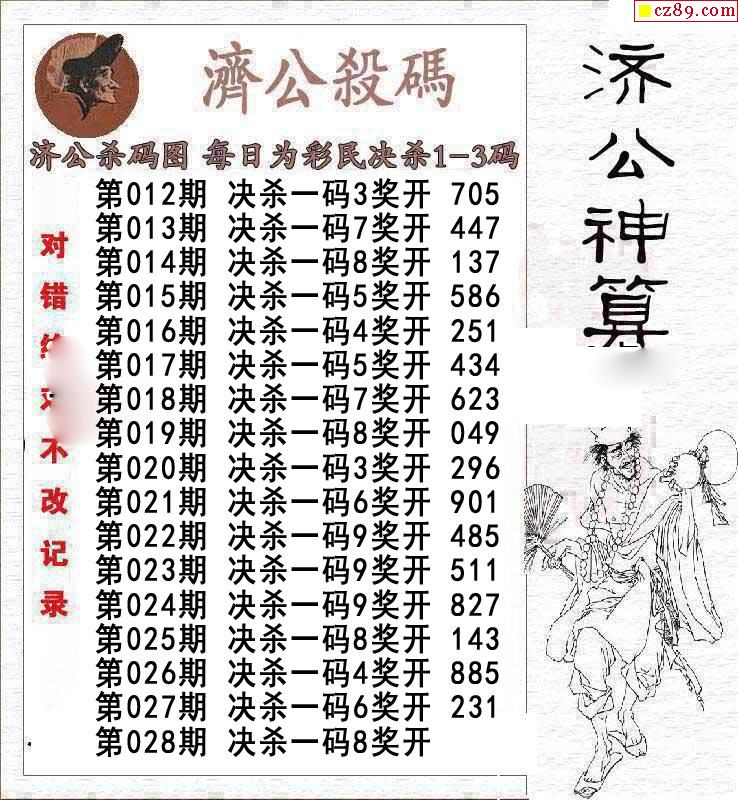 cz89.com
濟公殺碼
济公杀码图 每日为彩民决杀1-3码
第012期 决杀一码3奖开 705
第013期 决杀一码7奖开 447
第014期 决杀一码8奖开 137
第015期 决杀一码5奖开 586
第016期 决杀一码4奖开 251
第017期 决杀一码5奖开 434
第018期 决杀一码7奖开 623
第019期 决杀一码8奖开 049
第020期 决杀一码3奖开 296
第021期 决杀一码6奖开 901
第022期 决杀一码9奖开 485
第023期 决杀一码9奖开 511
第024期 决杀一码9奖开 827
第025期 决杀一码8奖开 143
第026期 决杀一码4奖开 885
第027期 决杀一码6奖开 231
第028期 决杀一码8奖开
对错
不改记录
济公神算